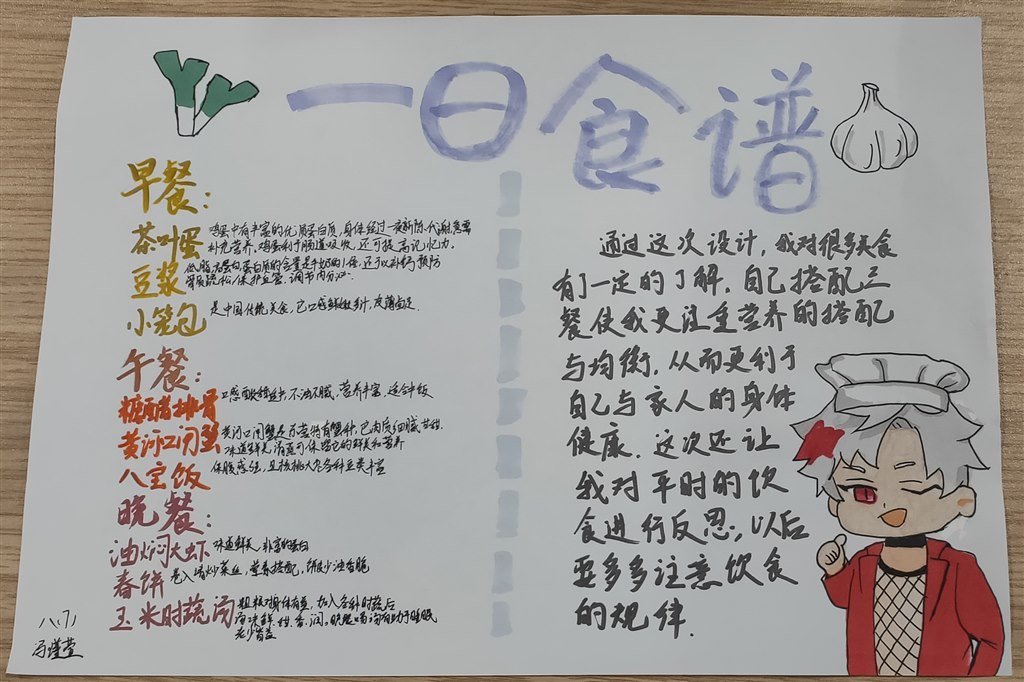 一日食谱
早餐:
茶叶蛋 鸡蛋中有丰富的优质蛋白质,身体经过一夜新陈代谢急需
补充营养。鸡蛋利于肠道吸收,还可提高记忆力。
豆浆 低脂高蛋白,蛋白质的含量是牛奶的1倍,还可以补钙预防
骨质疏松/保护血管,调节内分泌.
小笼包 是中国传统美食,它口感鲜嫩多汁,皮薄馅足.
午餐:
糖醋排骨 口感酸甜,不油不腻,营养丰富,适合午饭
黄河口闸蟹 黄河口闸蟹是东营特有蟹种,它肉质细腻甘甜
味道鲜美,清蒸可保留它的鲜美和营养
八宝饭 饱腹感强,且核桃大枣各种豆类丰富
晚餐:
油焖大虾 味道鲜美,丰富的蛋白
春饼 卷入清炒菜丝,营养搭配,饼皮少油香脆
玉米时蔬汤 粗粮对身体有益,加入各种时蔬后
味鲜,甜,香,润。晚餐喝汤有助于睡眠
老少皆宜
通过这次设计,我对很多美食
有了一定的了解.自己搭配三
餐使我更注重营养的搭配
与均衡,从而更利于
自己与家人的身体
健康.这次还让
我对平时的饮
食进行反思,以后
要多多注意饮食
的规律.
八(7)
冯瑾萱